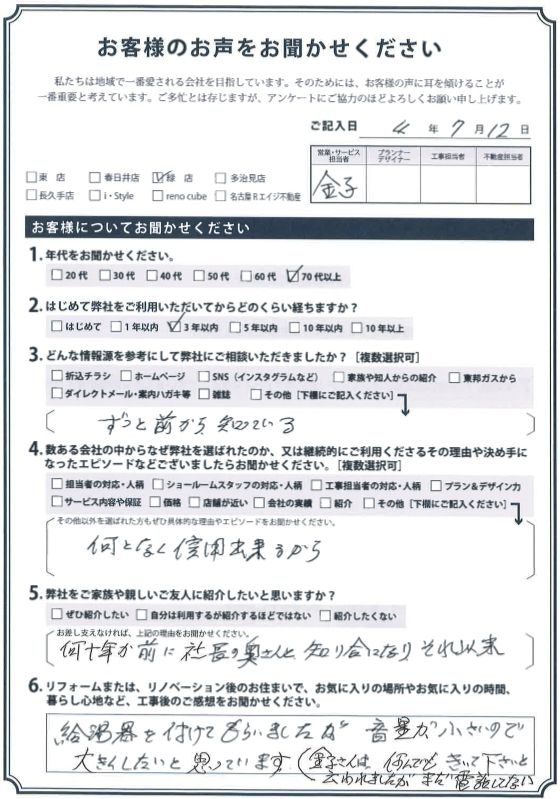 お客様のお声をお聞かせください
私たちは地域で一番愛される会社を目指しています。そのためには、お客様の声に耳を傾けることが
一番重要と考えています。ご多忙とは存じますが、アンケートにご協力のほどよろしくお願い申し上げます。
ご記入日 4 年 7 月 12 日
営業・サービス担当者 プランナーデザイナー 工事担当者 不動産担当者
金子
□東 店 □春日井店 ☑緑 店 □多治見店
□長久手店 □i・Style □reno cube □名古屋Rエイジ不動産
お客様についてお聞かせください
1. 年代をお聞かせください。
□20代 □30代 □40代 □50代 □60代 ☑70代以上
2. はじめて弊社をご利用いただいてからどのくらい経ちますか？
□はじめて □1年以内 ☑3年以内 □5年以内 □10年以内 □10年以上
3. どんな情報源を参考にして弊社にご相談いただきましたか？［複数選択可］
□折込チラシ □ホームページ □SNS（インスタグラムなど） □家族や知人からの紹介 □東邦ガスから
□ダイレクトメール・案内ハガキ等 □雑誌 □その他［下欄にご記入ください］
ずっと前から知っている
4. 数ある会社の中からなぜ弊社を選ばれたのか、又は継続的にご利用くださるその理由や決め手に
なったエピソードなどございましたらお聞かせください。［複数選択可］
□担当者の対応・人柄 □ショールームスタッフの対応・人柄 □工事担当者の対応・人柄 □プラン＆デザイン力
□サービス内容や保証 □価格 □店舗が近い □会社の実績 □紹介 □その他［下欄にご記入ください］
その他以外を選ばれた方もぜひ具体的な理由やエピソードをお聞かせください。
何となく信用出来るから
5. 弊社をご家族や親しいご友人に紹介したいと思いますか？
□ぜひ紹介したい □自分は利用するが紹介するほどではない □紹介したくない
お差し支えなければ、上記の理由をお聞かせください。
何十年か前に社長の奥さんと知り合になりそれ以来
6. リフォームまたは、リノベーション後のお住まいで、お気に入りの場所やお気に入りの時間、
暮らし心地など、工事後のご感想をお聞かせください。
給湯器を付けてもらいましたが音量が小さいので
大きくしたいと思っています（金子さんは何んでもきいて下さいと
云われましたがまだ電話してない